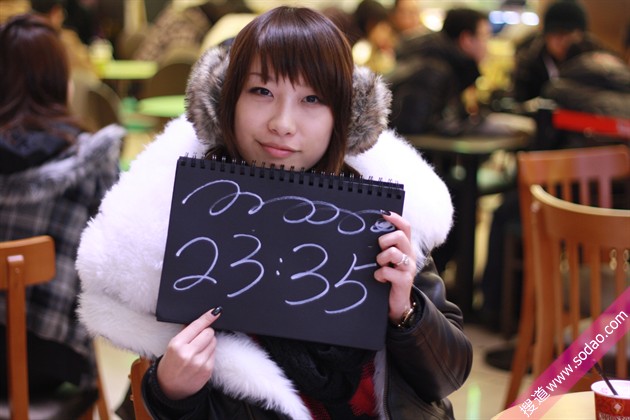 23:35
搜道www.sodao.com